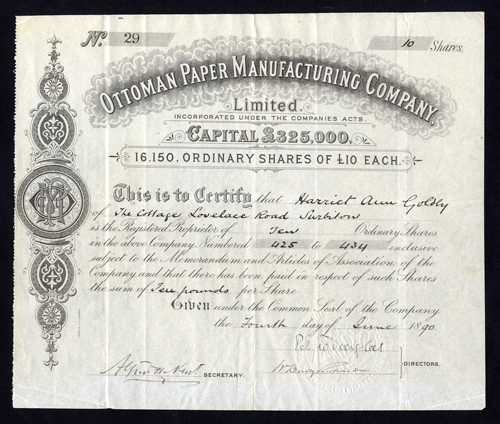 No. 29 10 Shares.
OTTOMAN PAPER MANUFACTURING COMPANY,
Limited.
INCORPORATED UNDER THE COMPANIES ACTS.
CAPITAL £325,000.
16.150. ORDINARY SHARES OF £10 EACH.
This is to Certify that Harriet Ann Goldby
of The Cottage Lovelace Road Surbiton
is the Registered Proprietor of Ten Ordinary Shares
in the above Company Numbered 425 to 434 inclusive
subject to the Memorandum and Articles of Association of the
Company and that there has been paid in respect of such Shares
the sum of Ten pounds per Share
Given under the Common Seal of the Company
the Fourth day of June 1890
SECRETARY.
DIRECTORS.